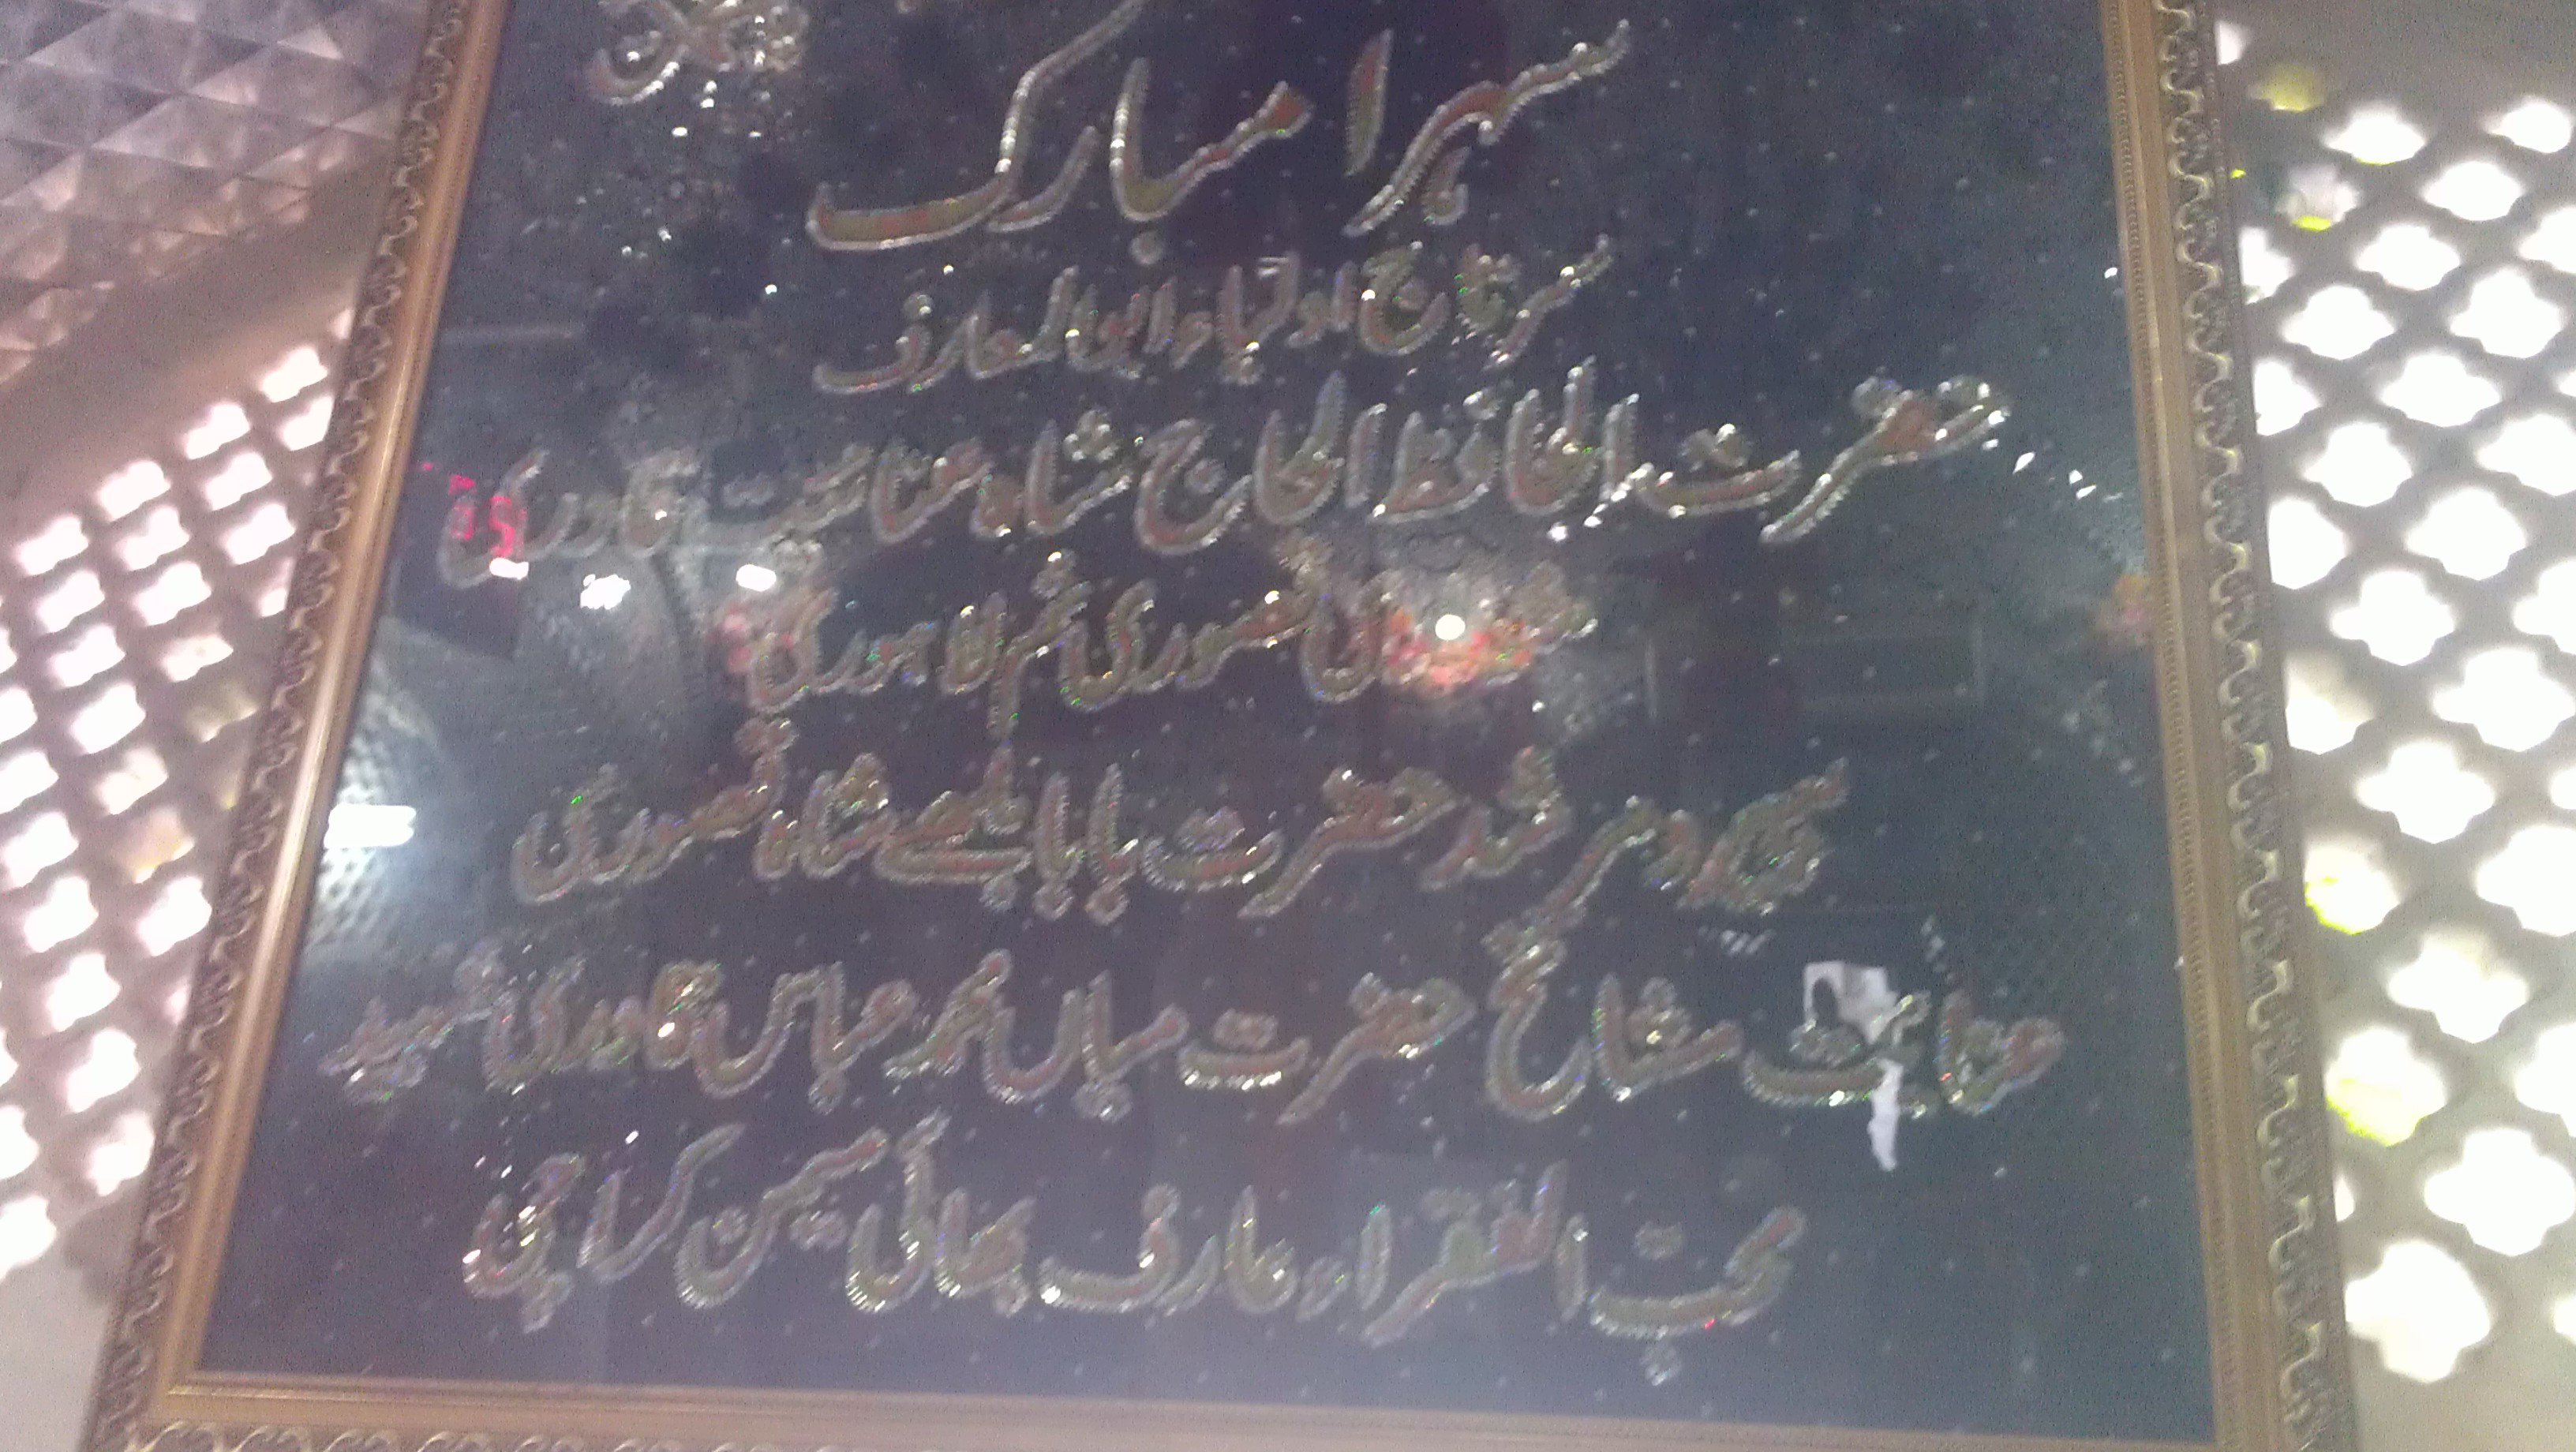 سہرا مبارک
سرتاج اولیاء ابی المعارف
حضرت الحافظ الحاج شاہ عنایت قادری
قصوری ثم لاہوری
و مرشد حضرت بابا بلھے شاہ قصوری
عنایت مشائخ حضرت میاں محمد عباس قادری شہید
محب الفقراء عارف بھائی کراچی